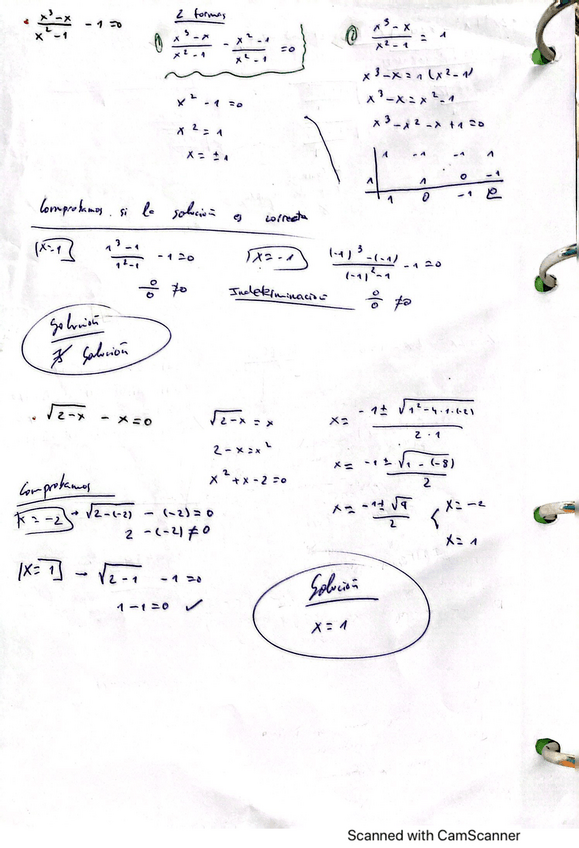 • x³-x / x²-1 - 1 = 0
2 formas
① x³-x / x²-1 - x²-1 / x²-1 = 0
x² - 1 = 0
x² = 1
x = ±1
② x³-x / x²-1 = 1
x³-x = 1(x²-1)
x³-x = x²-1
x³-x²-x+1=0
1 -1 -1 1
1 1 0 -1
1 0 -1 0
Comprobamos si la solución es correcta
x=1 1³-1 / 1²-1 - 1 = 0
0/0 ≠0
x=-1 (-1)³-(-1) / (-1)²-1 - 1 = 0
Indeterminación 0/0 ≠0
Solución
∄ Solución
• √2-x - x = 0
√2-x = x
2-x=x²
x²+x-2=0
x= -1± √1²-4·1·(-2) / 2·1
x= -1± √1-(-8) / 2
x= -1±√9 / 2
x=-2
x=1
Comprobamos
x=-2 → √2-(-2) - (-2)=0
2 -(-2)≠0
x=1 → √2-1 -1=0
1-1=0 ✓
Solución
x=1
Scanned with CamScanner